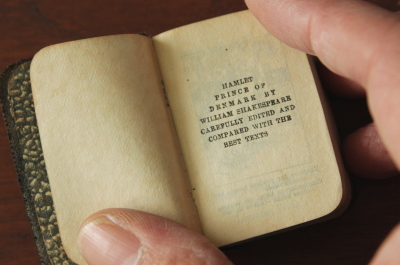 HAMLET
PRINCE OF
DENMARK BY
WILLIAM SHAKESPEARE
CAREFULLY EDITED AND
COMPARED WITH THE
BEST TEXTS